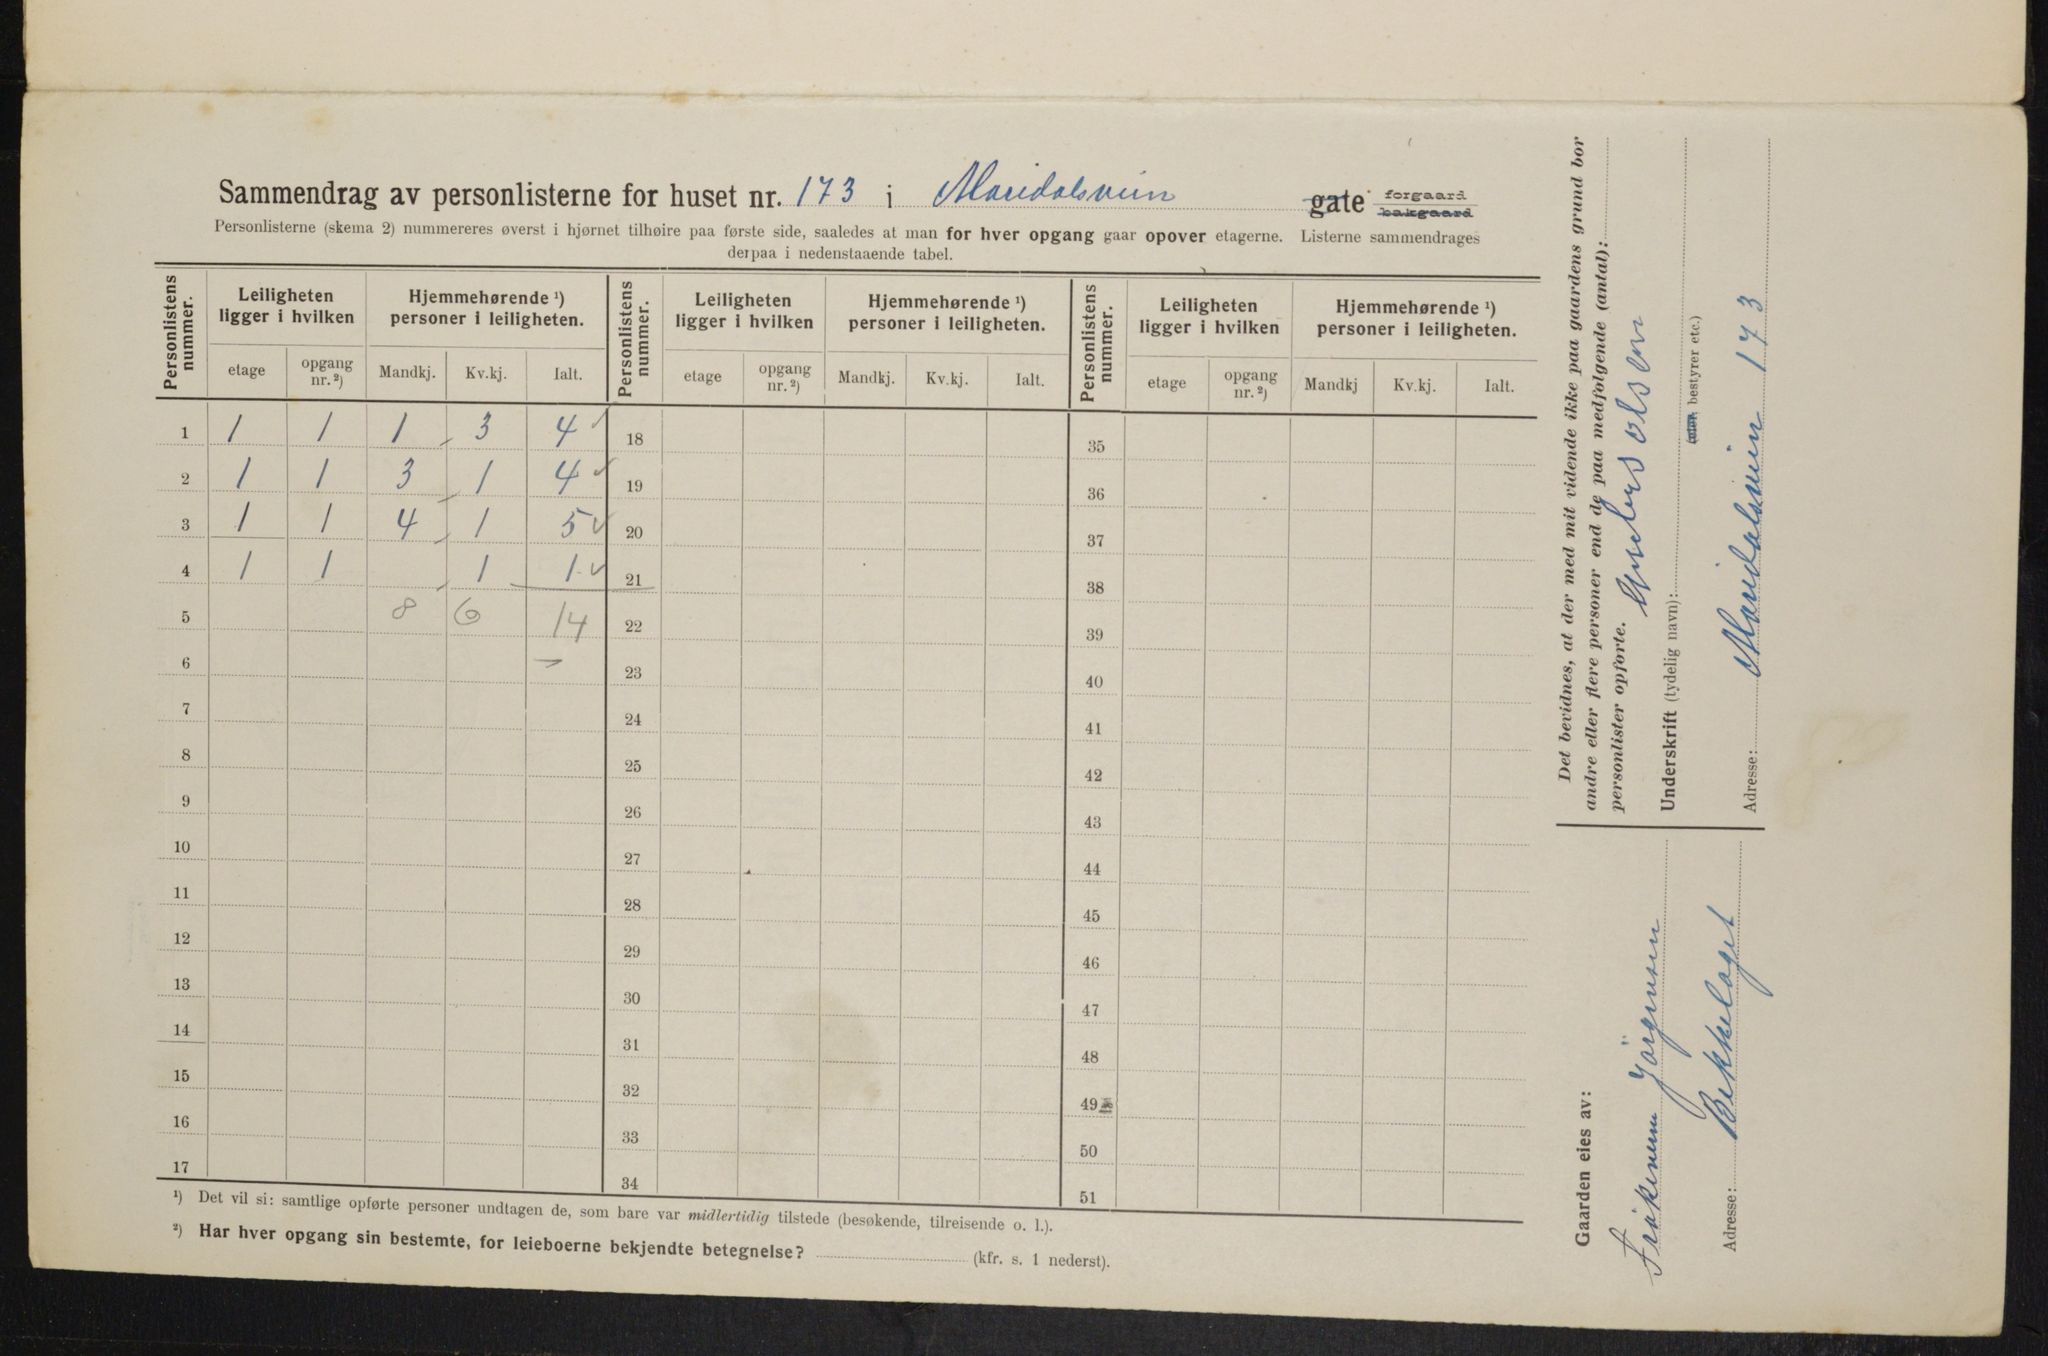 Sammendrag av personlisterne for huset nr. 173 i Maridalsveien gate forgaard bakgaard
Personlisterne (skema 2) nummereres øverst i hjørnet tilhøire paa første side, saaledes at man for hver opgang gaar opover etagerne. Listerne sammendrages
derpaa i nedenstaaende tabel.
Personlistens nummer. Leiligheten ligger i hvilken Hjemmehørende ¹) personer i leiligheten. Personlistens nummer. Leiligheten ligger i hvilken Hjemmehørende ¹) personer i leiligheten. Personlistens nummer. Leiligheten ligger i hvilken Hjemmehørende ¹) personer i leiligheten.
etage opgang nr. ²) Mandkj. Kv.kj. Ialt. etage opgang nr. ²) Mandkj. Kv.kj. Ialt. etage opgang nr. ²) Mandkj Kv.kj. Ialt.
1 1 1 1 3 4 18 35
2 1 1 3 1 4 19 36
3 1 1 4 1 5 20 37
4 1 1 1 1 21 38
5 8 6 14 22 39
6 23 40
7 24 41
8 25 42
9 26 43
10 27 44
11 28 45
12 29 46
13 30 47
14 31 48
15 32 49
16 33 50
17 34 51
¹) Det vil si: samtlige opførte personer undtagen de, som bare var midlertidig tilstede (besøkende, tilreisende o. l.).
²) Har hver opgang sin bestemte, for leieboerne bekjendte betegnelse? (kfr. s. 1 nederst).
Det bevidnes, at der med mit vidende ikke paa gaardens grund bor
andre eller flere personer end de paa medfølgende (antal):
personlister opførte.
Olsen
Underskrift (tydelig navn):
(eier, bestyrer etc.)
Adresse: Maridalsveien 173
Gaarden eies av:
Frøkenen Jörgensen
Adresse: Bekkelaget